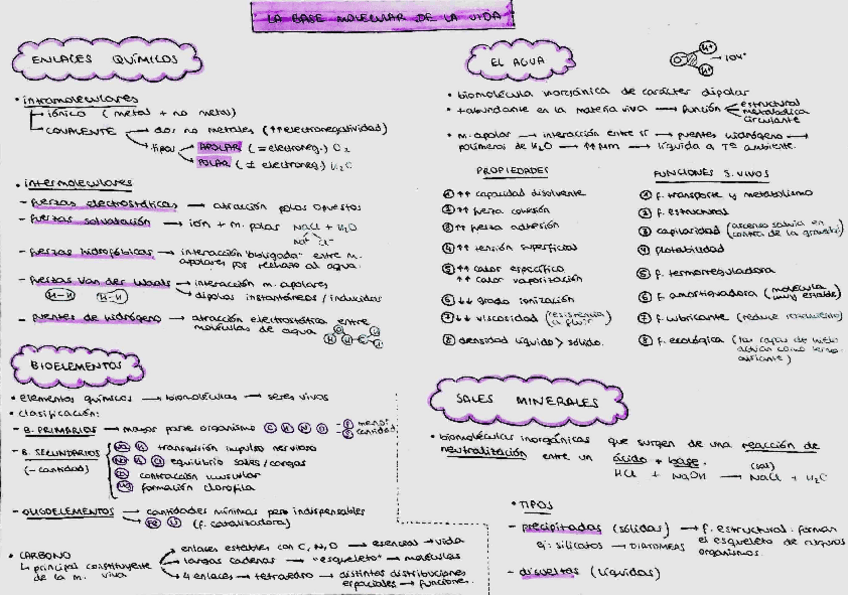 LA BASE MOLECULAR DE LA VIDA
ENLACES QUÍMICOS
• intramoleculares
iónico (metal + no metal)
COVALENTE → dos no metales (↑↑electronegatividad)
tipos → APOLAR (= electroneg.) O2
POLAR (≠ electroneg.) H2O
• intermoleculares
- fuerzas electrostáticas → atracción polos opuestos
- fuerzas solvatación → ión + m. polar NaCl + H2O
Na+ Cl-
- fuerzas hidrofóbicas → interacción "obligada" entre m.
apolares por rechazo al agua.
- fuerzas Van der Waals → interacción m. apolares
H-H H-H → dipolos instantáneos / inducidos
- puentes de hidrógeno → atracción electrostática entre
moléculas de agua
BIOELEMENTOS
• elementos químicos → biomoléculas → seres vivos
• clasificación:
- B. PRIMARIOS → mayor parte organismo C H N O - P menos
- S cantidad
- B. SECUNDARIOS
(- cantidad)
Na K transmisión impulso nervioso
Na K Cl equilibrio sales/cargas
contracción muscular
Mg formación clorofila
- OLIGOELEMENTOS → cantidades mínimas pero indispensables
Fe (f. catalizadora)
• CARBONO
↳ principal constituyente
de la m. viva
→ enlaces estables con C, N, O → esencial → vida
→ largas cadenas → "esqueleto" → moléculas
→ 4 enlaces → tetraedro → distintas distribuciones
espaciales → funciones.
EL AGUA
H+
H+
→ 104°
• biomolécula inorgánica de carácter dipolar
• + abundante en la materia viva → función
estructural
metabólica
circulante
• m. apolar → interacción entre sí → puentes hidrógeno →
polímeros de H2O → ↑↑ Mm → líquida a Tª ambiente.
PROPIEDADES
① ↑↑ capacidad disolvente
② ↑↑ fuerza cohesión
③ ↑↑ fuerza adhesión
④ ↑↑ tensión superficial
⑤ ↑↑ calor específico
↑↑ calor vaporización
⑥ ↓↓ grado ionización
⑦ ↓↓ viscosidad (resistencia a fluir)
⑧ densidad líquido > sólido.
FUNCIONES S. VIVOS
① f. transporte y metabolismo
② f. estructural
③ capilaridad (ascenso salvia en
contra de la gravedad)
④ flotabilidad
⑤ f. termorreguladora
⑥ f. amortiguadora (molécula
muy estable)
⑦ f. lubricante (reduce rozamiento)
⑧ f. ecológica (las capas de hielo
actúan como termo
aislante)
SALES MINERALES
• biomoléculas inorgánicas que surgen de una reacción de
neutralización entre un ácido + base.
(sal)
HCl + NaOH → NaCl + H2O
• TIPOS
- precipitados (sólidas) → f. estructural. forman
el esqueleto de algunos
organismos.
ej: silicatos → DIATOMEAS
- disueltas (líquidas)